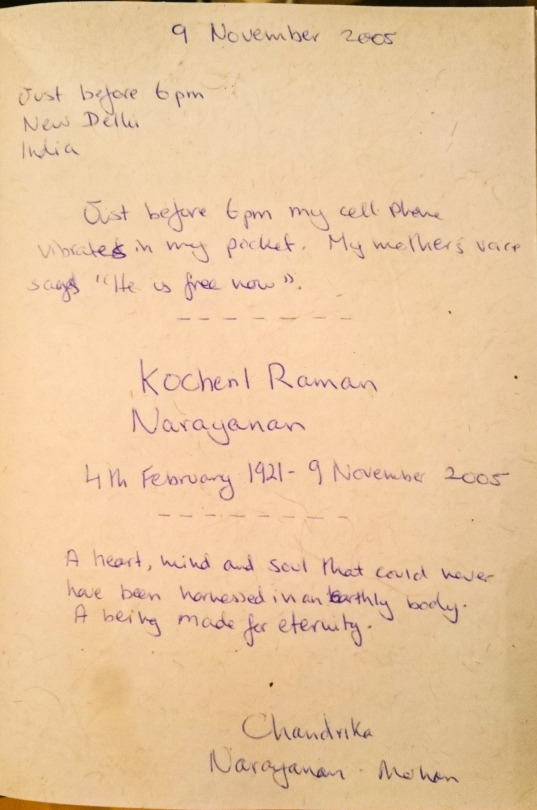 9 November 2005
Just before 6pm
New Delhi
India
Just before 6pm my cell phone
vibrates in my pocket. My mother's voice
says "He is free now".
Kocheril Raman
Narayanan
4th February 1921 - 9 November 2005
A heart, mind and soul that could never
have been harnessed in an earthly body.
A being made for eternity.
Chandrika
Narayanan - Mohan